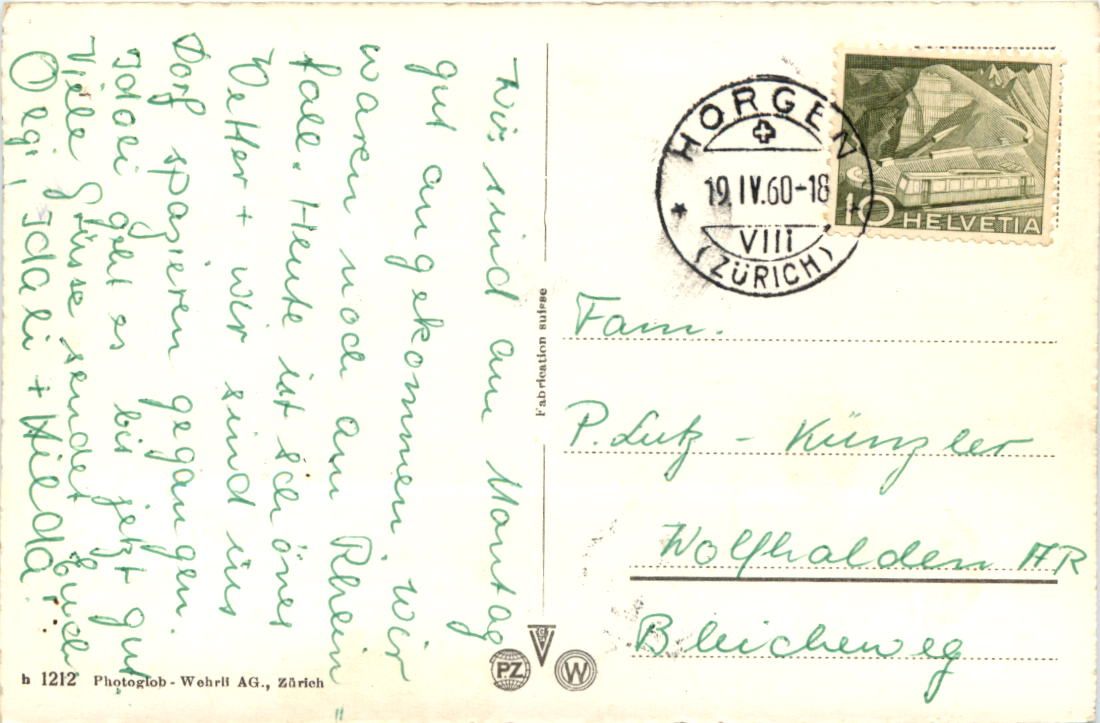 Wir sind am Montag
gut angekommen, wir
waren noch am Rhein
fall. Heute ist schönes
Wetter + wir sind ins
Dorf spazieren gegangen.
Idali geht es bis jetzt gut
Viele Grüsse sendet Euch
Idali + Hilda
HORGEN
19.IV.60-18
VIII
(ZÜRICH)
10 HELVETIA
Fam.
P. Lutz - Künzler
Wolfhalden AR
Bleicheweg
Fabrication suisse
PZ
W
h 1212 Photoglob-Wehrli AG., Zürich